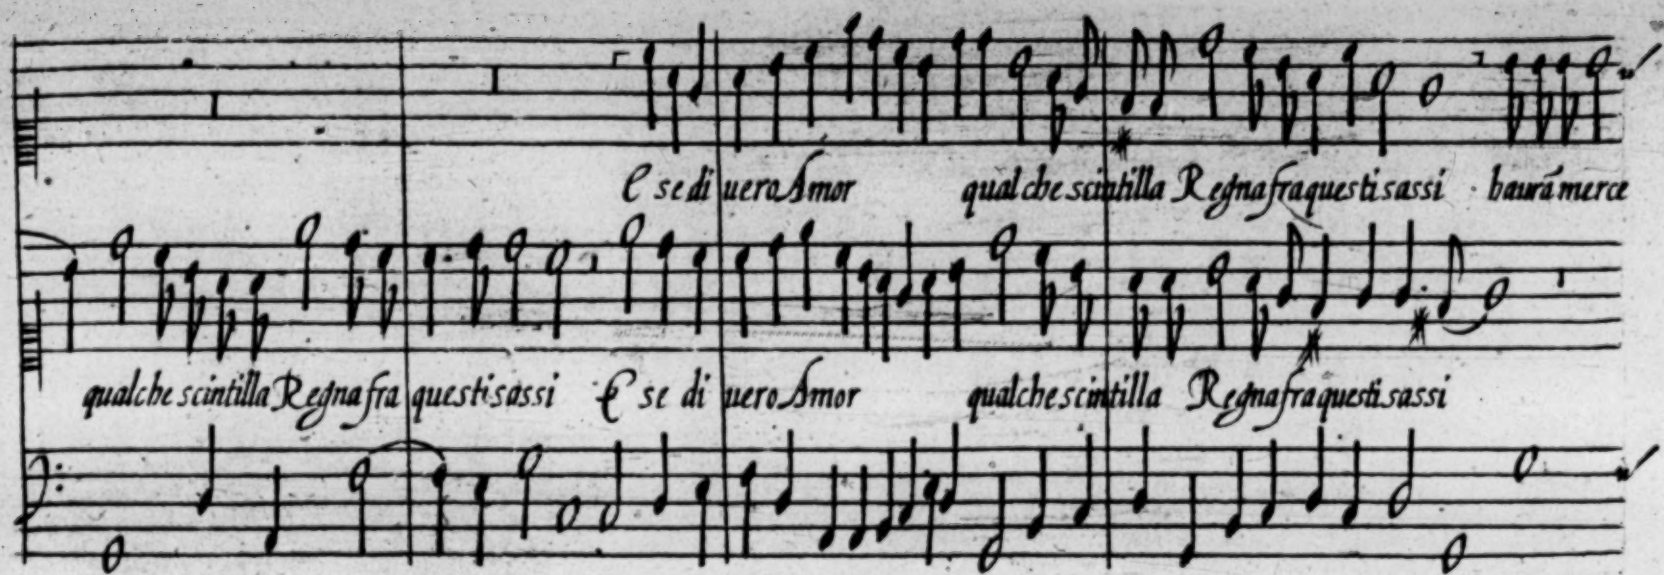 E se di uero Amor qual che scintilla Regna fra questi sassi haurà merce
qual che scintilla Regna fra questi sassi E se di uero Amor qual che scintilla Regna fra questi sassi